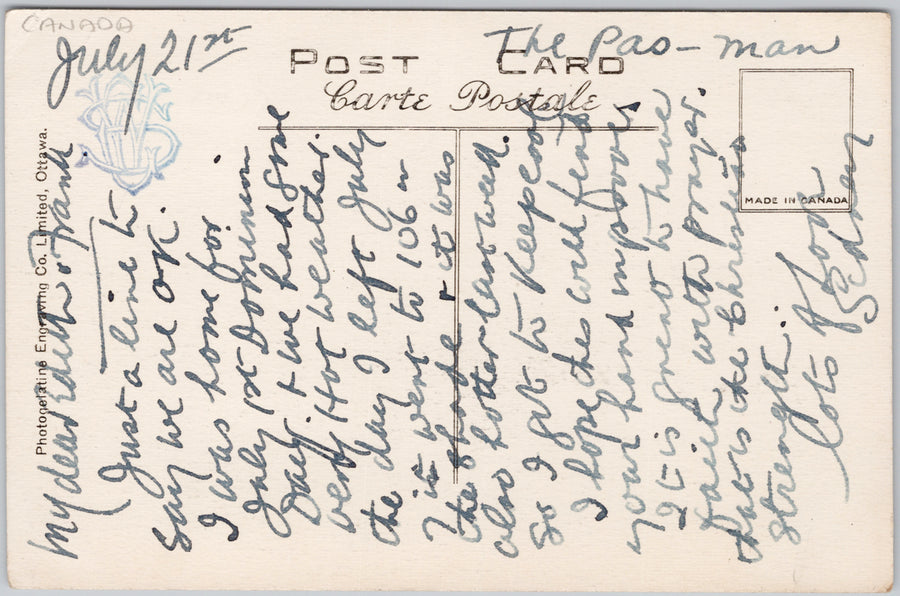 CANADA
July 21st
The Pas - man
POST CARD
Carte Postale
MADE IN CANADA
Photogelatine Engraving Co. Limited, Ottawa.
My dear Edith & Frank
Just a line to
say we are OK.
I was home for
July 1st Dominion
Day. & we had some
very Hot weather
the day I left July
it went to 106 in
the shade & it was
also hotter last week.
So I got to keep cool
I hope thes will find
your hand improved
It is great to have
faith with prayer.
that is the Christian
strength.
Lots of love
Sedney